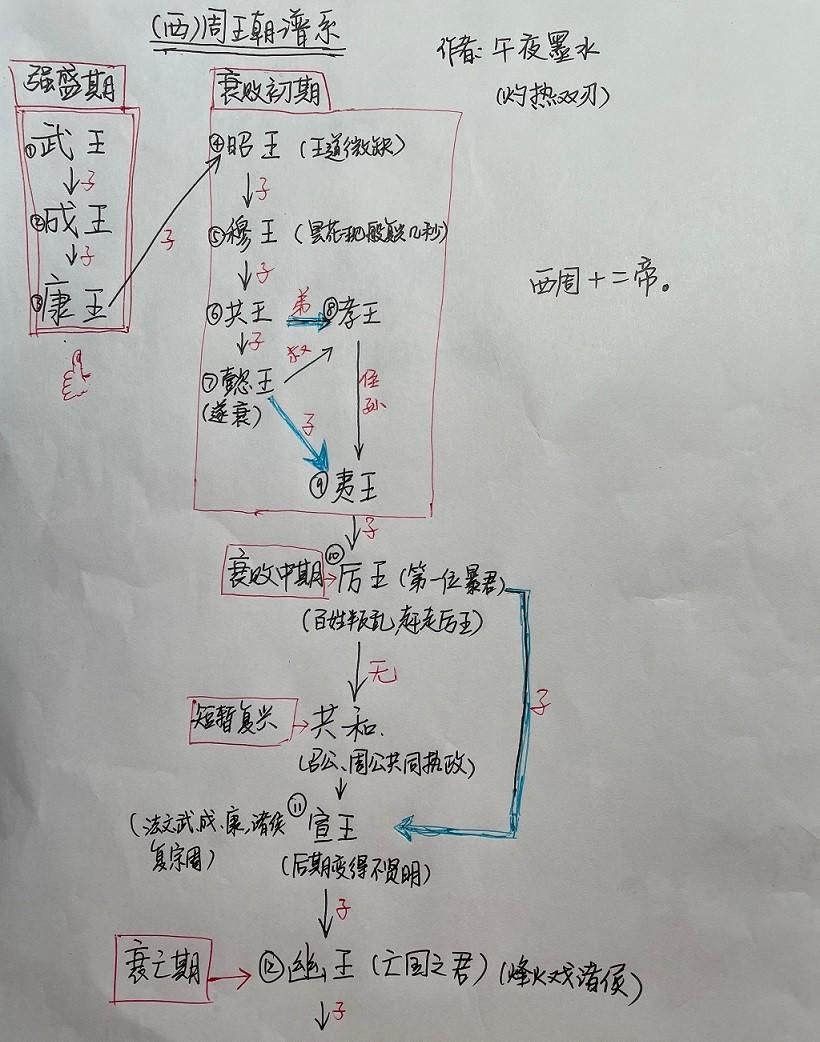 (西)周王朝谱系
作者:午夜墨水
(灼热双刃)
强盛期
①武王
子
②成王
子
③康王
子
衰败初期
④昭王(王道微缺)
子
⑤穆王(昙花一现般复兴几秒)
子
⑥共王 弟 ⑧孝王
子
叔
⑦懿王
(遂衰)
侄孙
子
⑨夷王
西周十二帝。
子
衰败中期
⑩厉王(第一位暴君)
(百姓叛乱,赶走厉王)
无
子
短暂复兴
共和.
(召公、周公共同执政)
(法文武.成.康,诸侯
复宗周)
⑪宣王
(后期变得不贤明)
子
衰亡期
⑫幽王(亡国之君)(烽火戏诸侯)
子